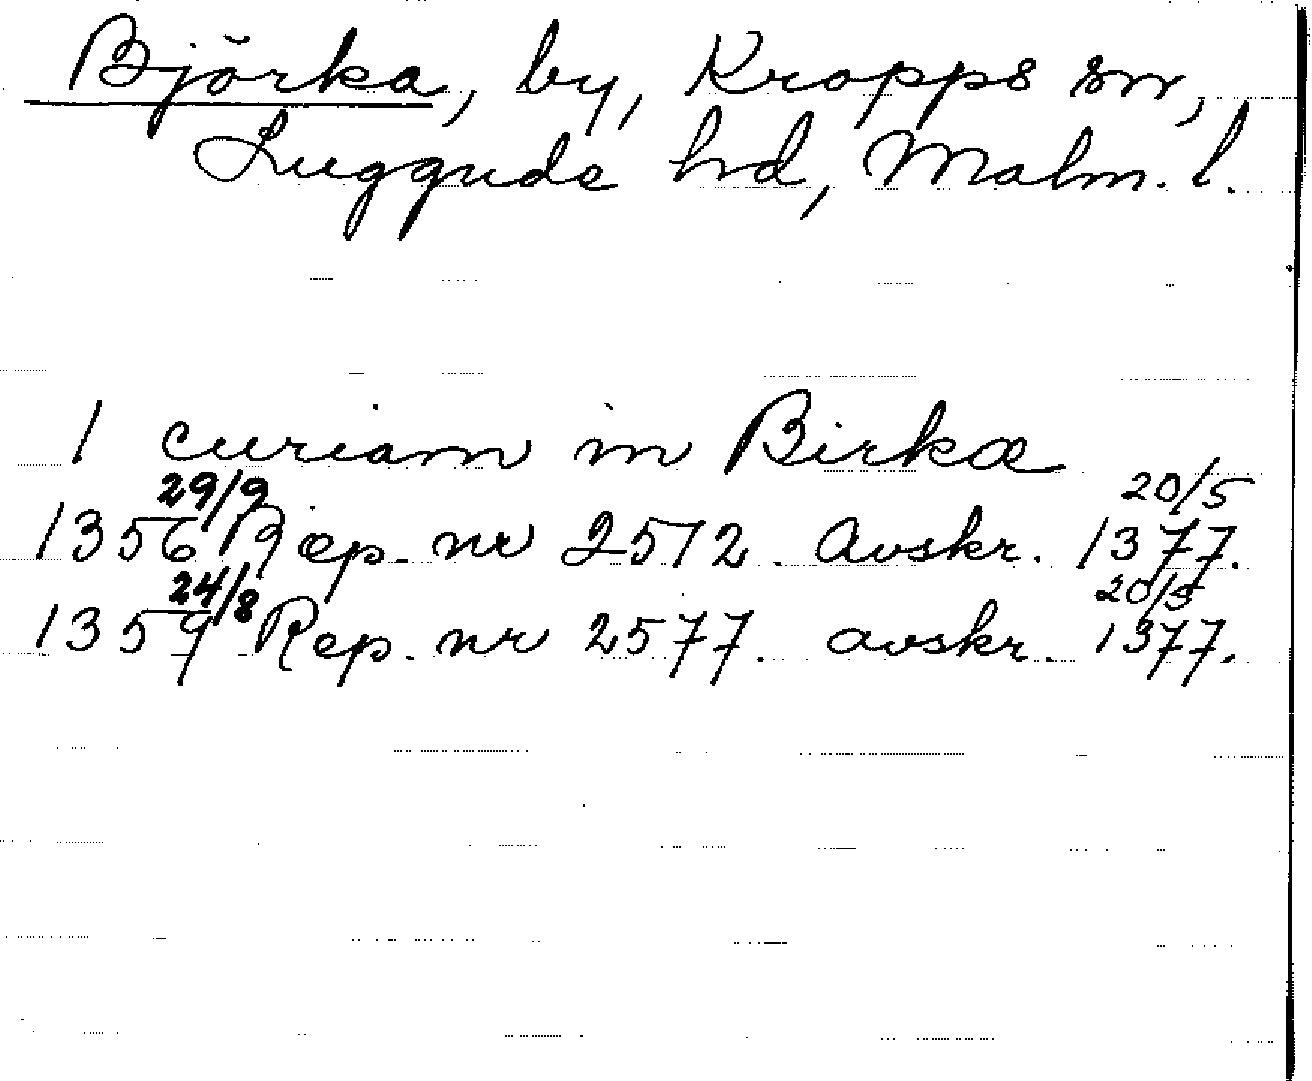 Björka, by, Kropps sn,
Luggude hd, Malm. l.
1 curiam in Birkæ
29/9 20/5
1356 Rep. nr 2572. Avskr. 1377.
24/8 20/5
1359 Rep. nr 2577. avskr. 1377.